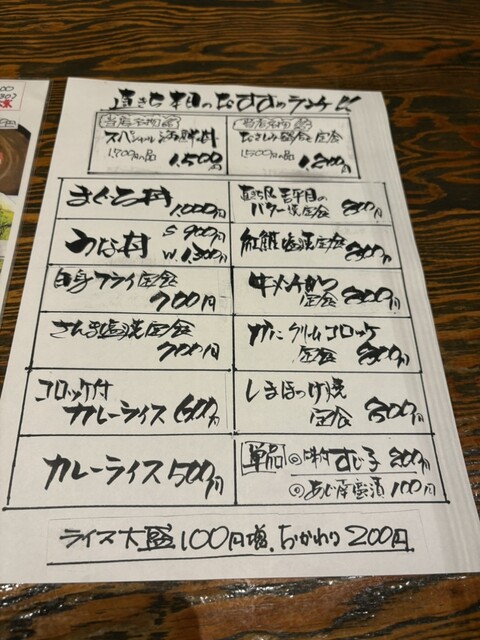 直きち 本日のおすすめランチ!!
当店名物
スペシャル海鮮丼
1500円の品
1,500円
当店名物
おさしみ盛合せ定食
1500円の品
1,200円
まぐろ丼
1,000円
平目の
バター焼定食 800円
うな丼 S 900円
W. 1,300円
紅鮭塩焼定食 800円
白身フライ定食
700円
牛メンチかつ
定食 800円
さんま塩焼定食
700円
かにクリームコロッケ
定食 800円
コロッケ付
カレーライス 600円
しまほっけ焼
定食 800円
カレーライス 500円
単品
すじ子 200円
100円
ライス大盛100円増、おかわり200円